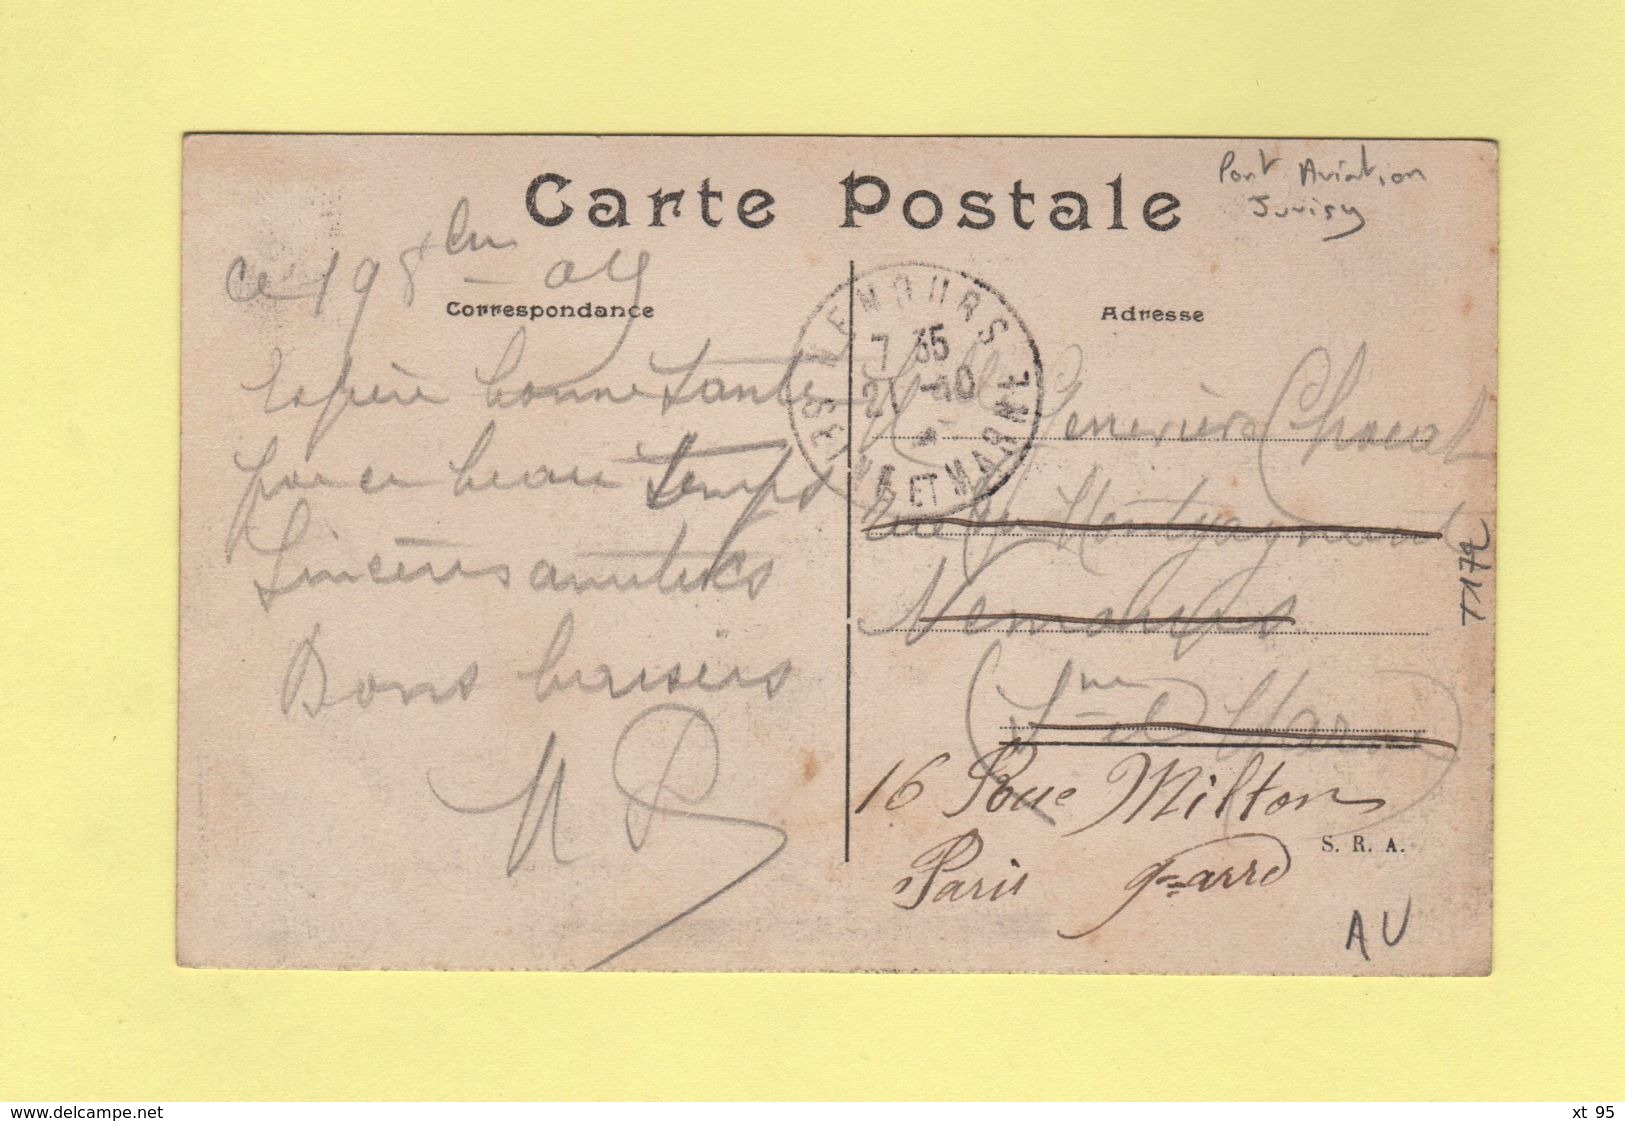 Carte Postale
Port Aviation
Juvisy
ce 19 8bre - 09
Correspondance
Espère bonne santé
par ce beau temps
Sincères amitiés
Bons baisers
NEMOURS
7 35
21 -10
*
SEINE ET MARNE
Adresse
Melle Geneviève
rue
Nemours
(Sne et Marne)
16 Rue Milton
Paris 9me arrd
S. R. A.
T172
AU
www.delcampe.net
xt 95